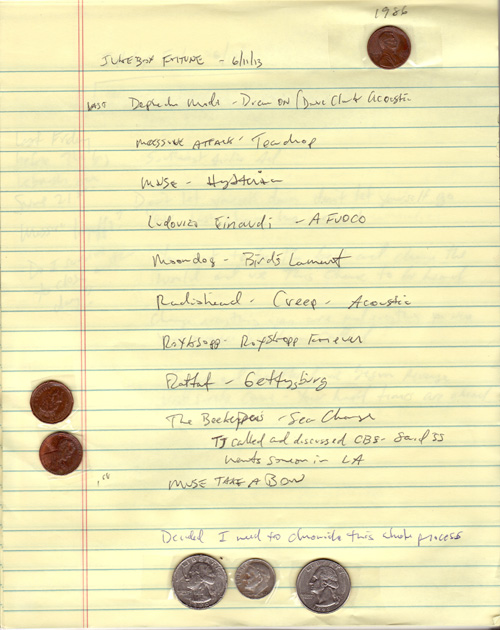 1986
JUKEBOX FORTUNE - 6/11/13
LAST Depeche Mode - Dream ON / Dave Clark Acoustic
MASSIVE ATTACK - Teardrop
MUSE - Hysteria
Ludovico Einaudi - A FUOCO
Moondog - Bird's Lament
Radiohead - Creep - Acoustic
Royksopp - Royksopp Forever
Ratatat - Gettysburg
The Beekeepers - Sea Change
TJ called and discussed CBS - Said JJ
wants someone in LA
1st MUSE TAKE A BOW
Decided I need to chronicle this whole process